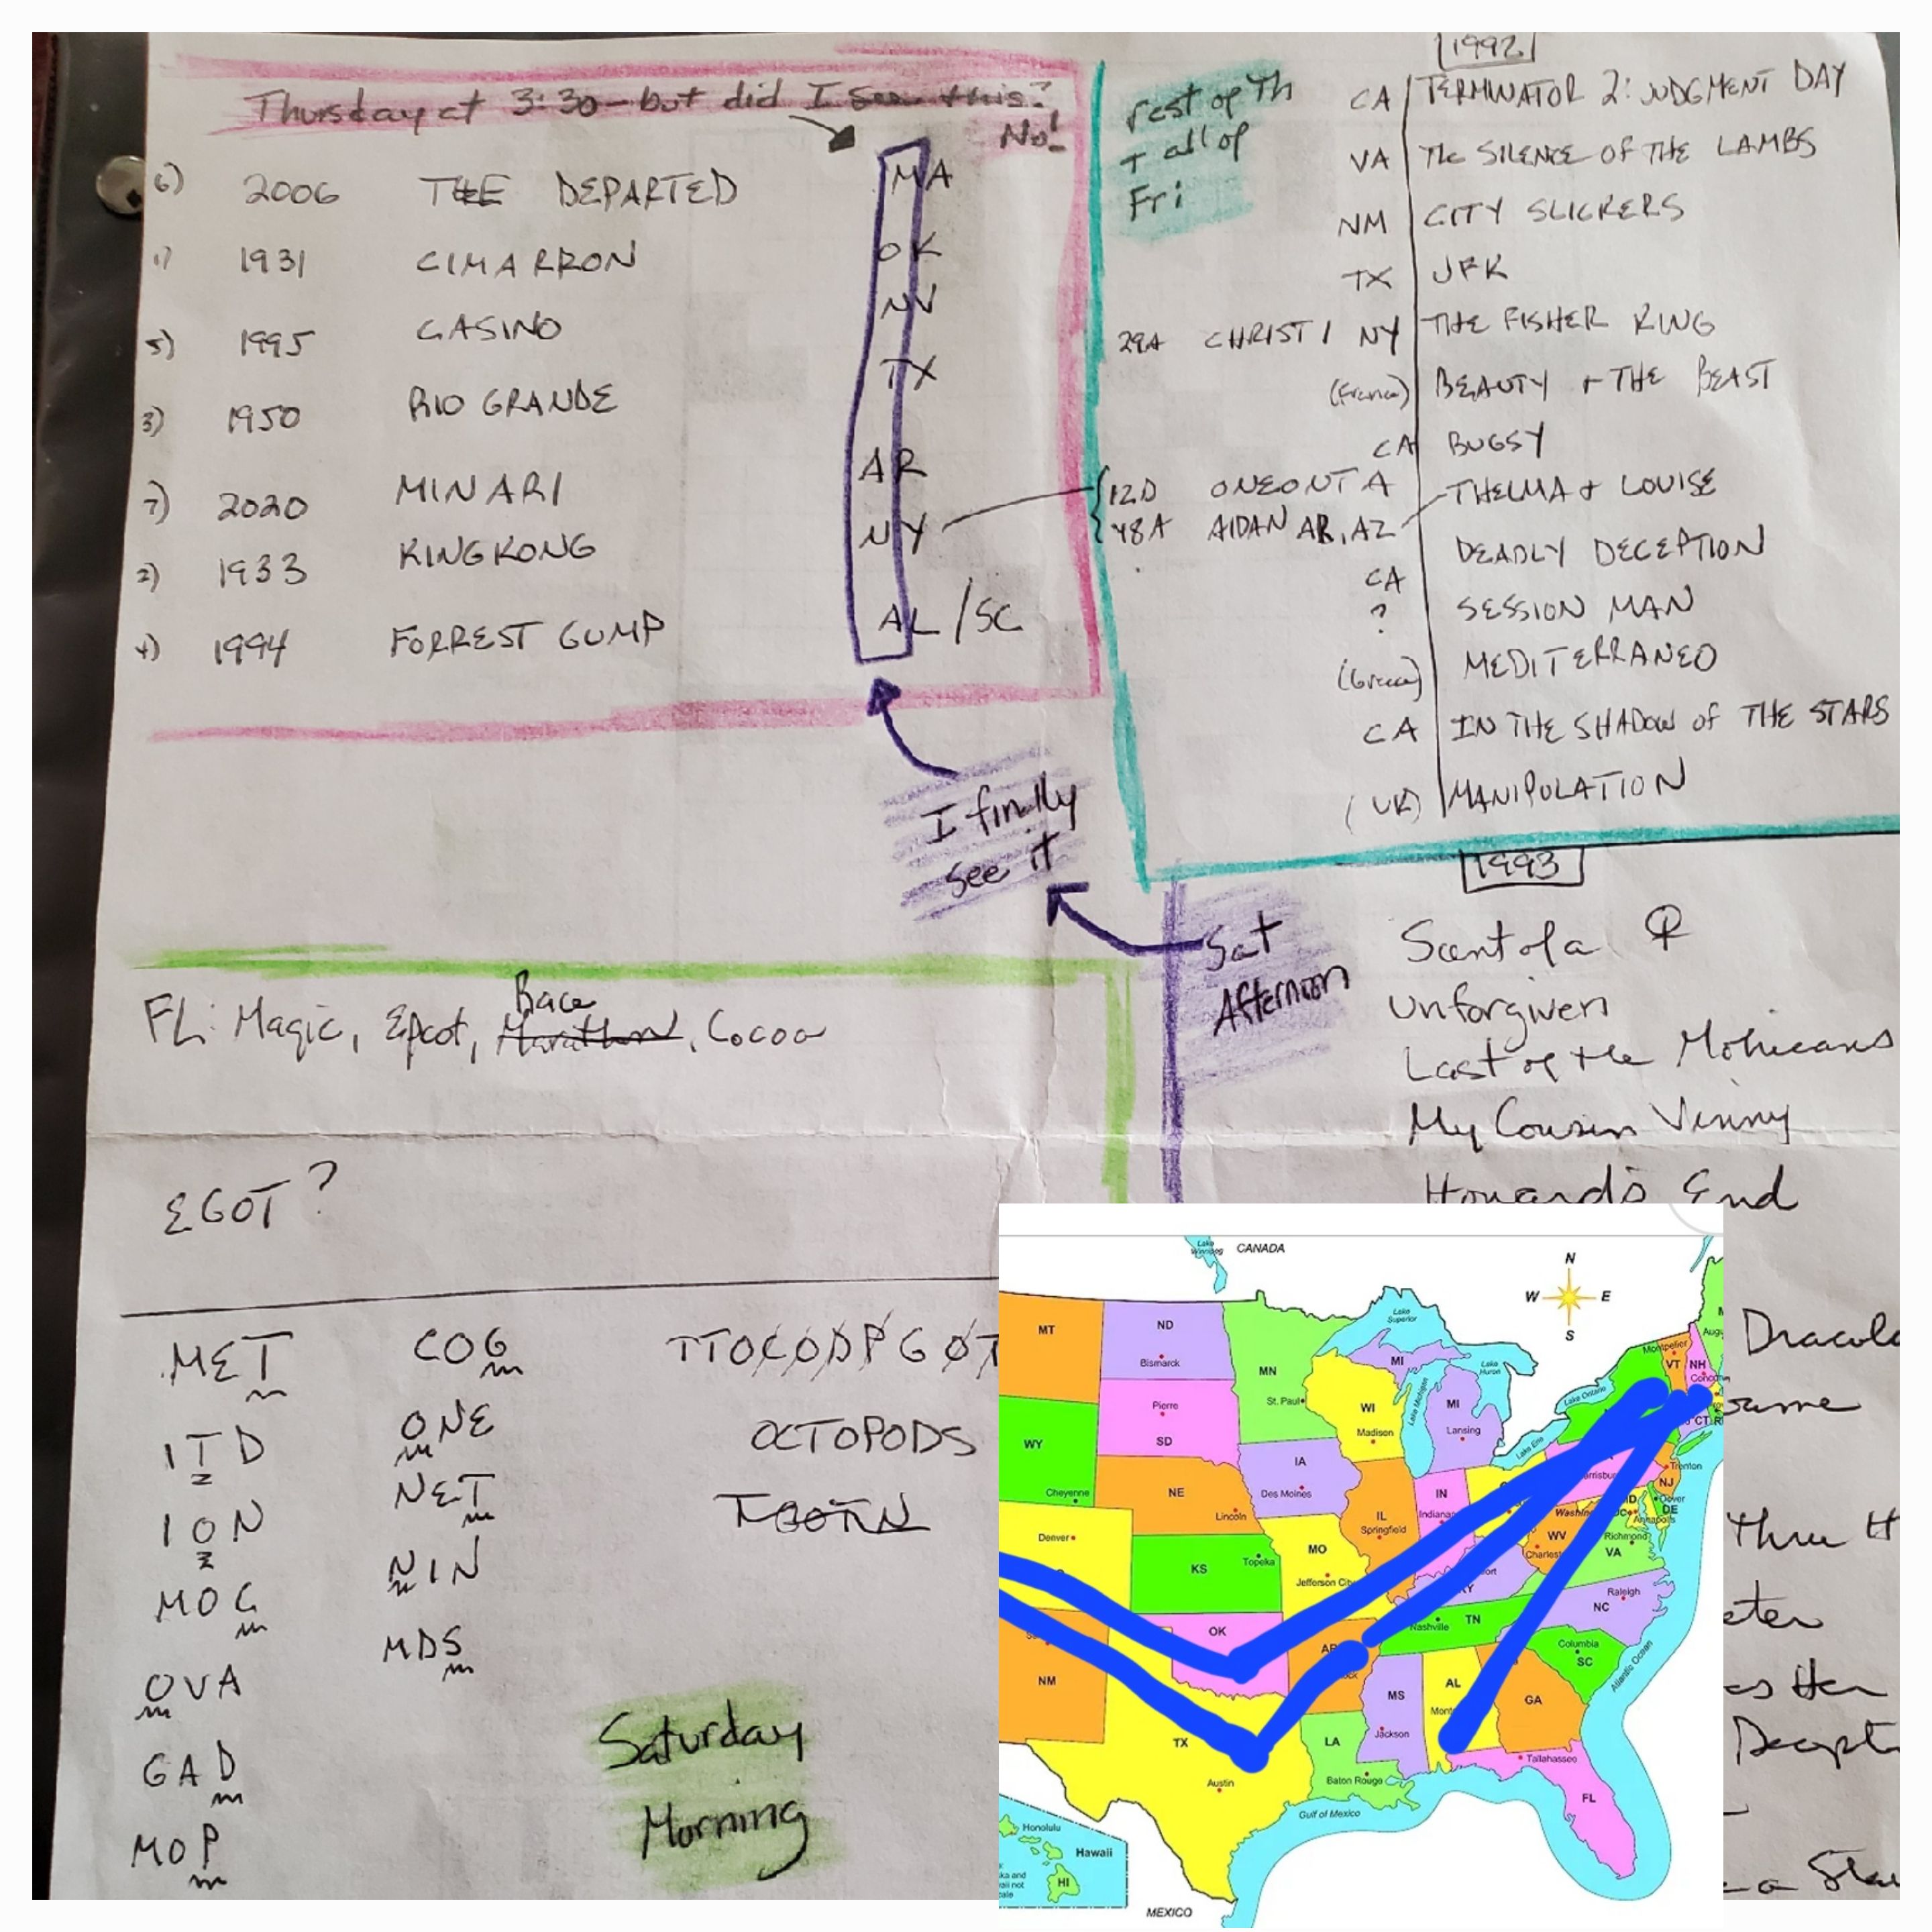 Thursday at 3:30 - but did I see this?
No!
6) 2006 THE DEPARTED MA
1) 1931 CIMARRON OK
5) 1995 CASINO NV
3) 1950 RIO GRANDE TX
7) 2020 MINARI AR
2) 1933 KING KONG NY
4) 1994 FORREST GUMP AL/SC
I finally
see it
Sat
Afternoon
rest of Th
+ all of
Fri
1992
CA TERMINATOR 2: JUDGMENT DAY
VA The SILENCE OF THE LAMBS
NM CITY SLICKERS
TX JFK
29A CHRISTI NY THE FISHER KING
(France) BEAUTY + THE BEAST
CA BUGSY
12D ONEONTA THELMA + LOUISE
48A AIDAN AR, AZ
CA DEADLY DECEPTION
? SESSION MAN
(Greece) MEDITERRANEO
CA IN THE SHADOW of THE STARS
(UK) MANIPULATION
1993
Scent of a ♀
Unforgiven
Last of the Mohicans
My Cousin Vinny
Howard's End
Dracula
thru H
Decept
FL: Magic, Epcot, Marathon, Cocoa
Race
EGOT?
MET COG TTOCODPGOT
ITD ONE OCTOPODS
ION NET
MOG NIN
OVA MDS
GAD
MOP
Saturday
Morning
CANADA
Lake Winnipeg
N
W E
S
MT
ND
Bismarck
MN
St. Paul
Lake Superior
MI
Lake Huron
Lake Michigan
Montpelier
VT
NH
Pierre
SD
WI
Madison
MI
Lansing
Lake Ontario
Lake Erie
CT
WY
Cheyenne
NE
Lincoln
IA
Des Moines
IL
Springfield
IN
Trenton
NJ
Dover
DE
Denver
KS
Topeka
MO
WV
Richmond
VA
OK
TN
Nashville
Raleigh
NC
NM
MS
Jackson
AL
GA
Columbia
SC
Atlantic Ocean
TX
Austin
LA
Baton Rouge
Tallahassee
FL
Gulf of Mexico
Honolulu
Hawaii
HI
MEXICO